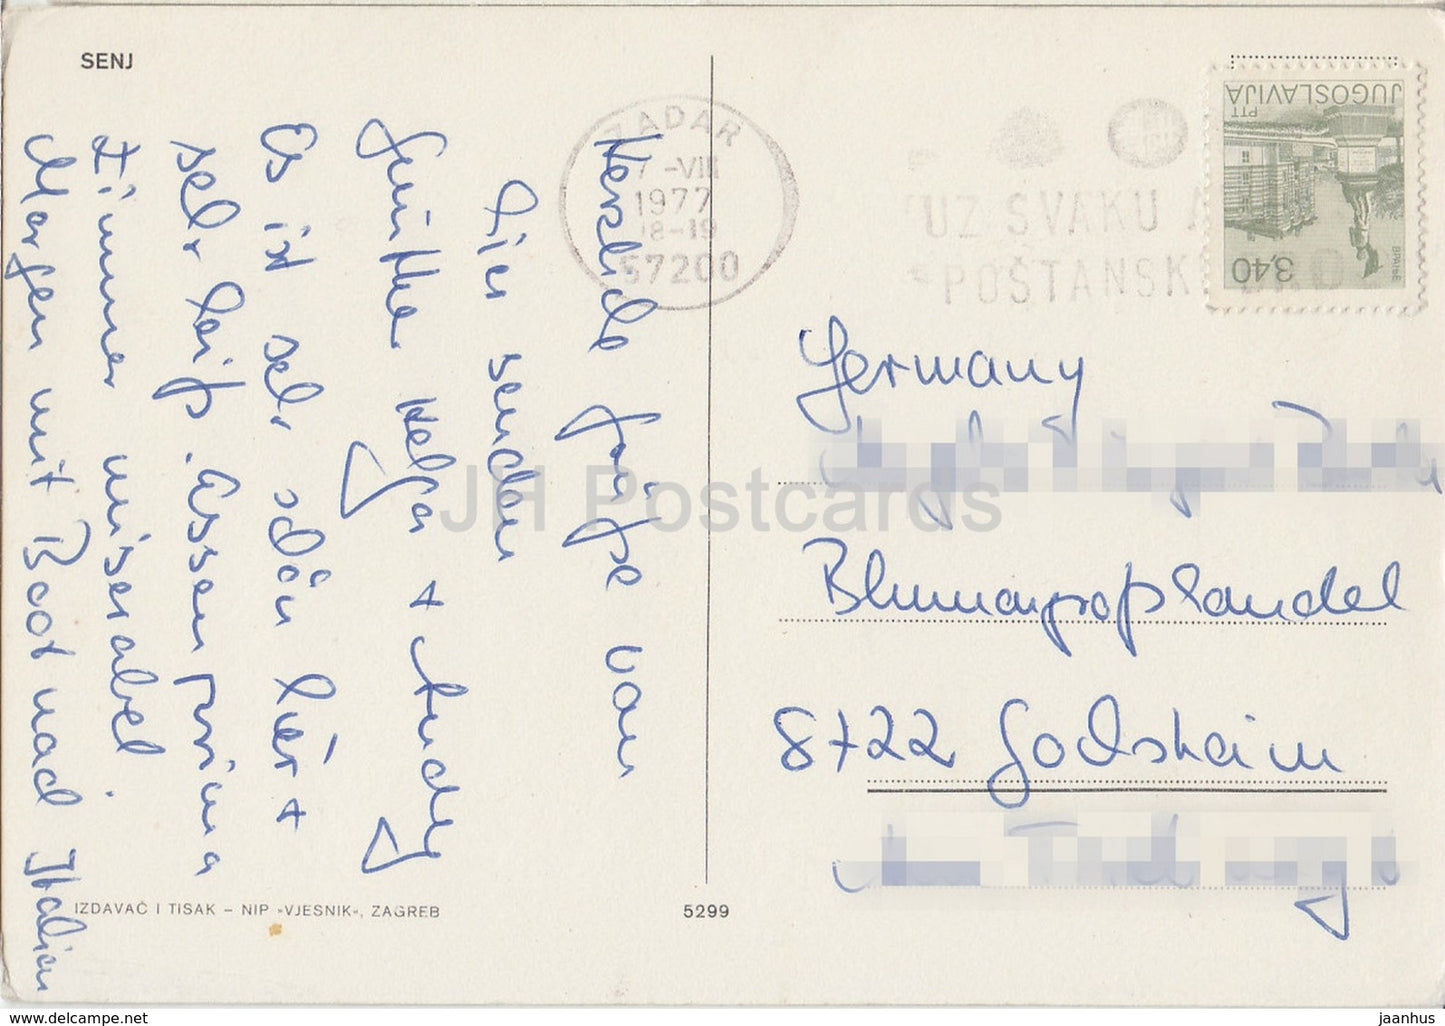 SENJ
Herzliche Grüße von
hier senden
Günther Helga + Andy
Es ist sehr schön hier +
sehr heiß. Essen prima
Zimmer miserabel.
Morgen mit Boot nach Italien
IZDAVAČ I TISAK – NIP »VJESNIK«, ZAGREB
5299
ZADAR
7-VIII
1977
18-19
57200
UZ SVAKU A
POŠTANSK
JUGOSLAVIJA
PTT
3,40
Germany
Blumengroßhandel
8722 Gochsheim
JH Postcards
www.delcampe.net
jaanhus